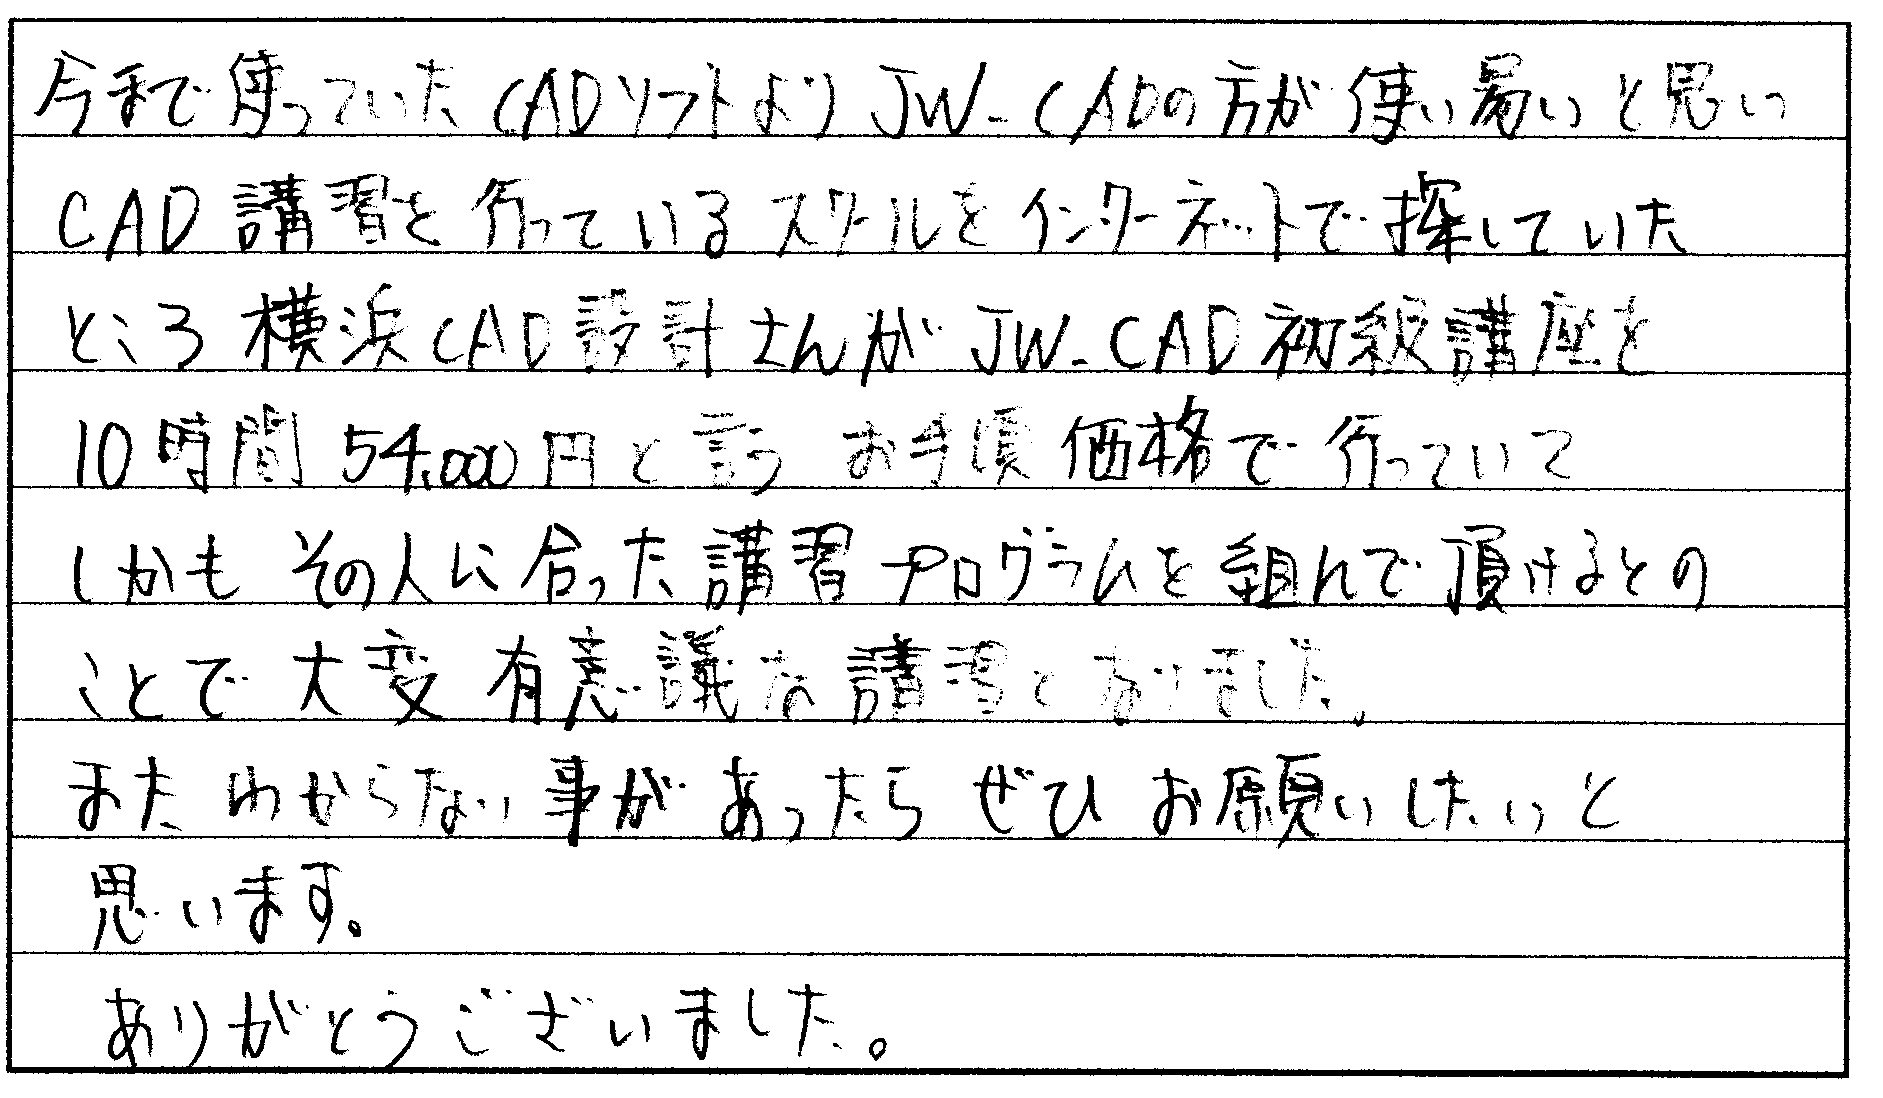 今まで使っていたCADソフトよりJW-CADの方が使い易いと思い
CAD講習を行っているスクールをインターネットで探していた
ところ横浜CAD設計さんがJW-CAD初級講座を
10時間54,000円と言うお手頃価格で行っていて
しかもその人に合った講習プログラムを組んで頂けるとの
ことで大変有意議な講習となりました。
またわからない事があったらぜひお願いしたいと
思います。
ありがとうございました。